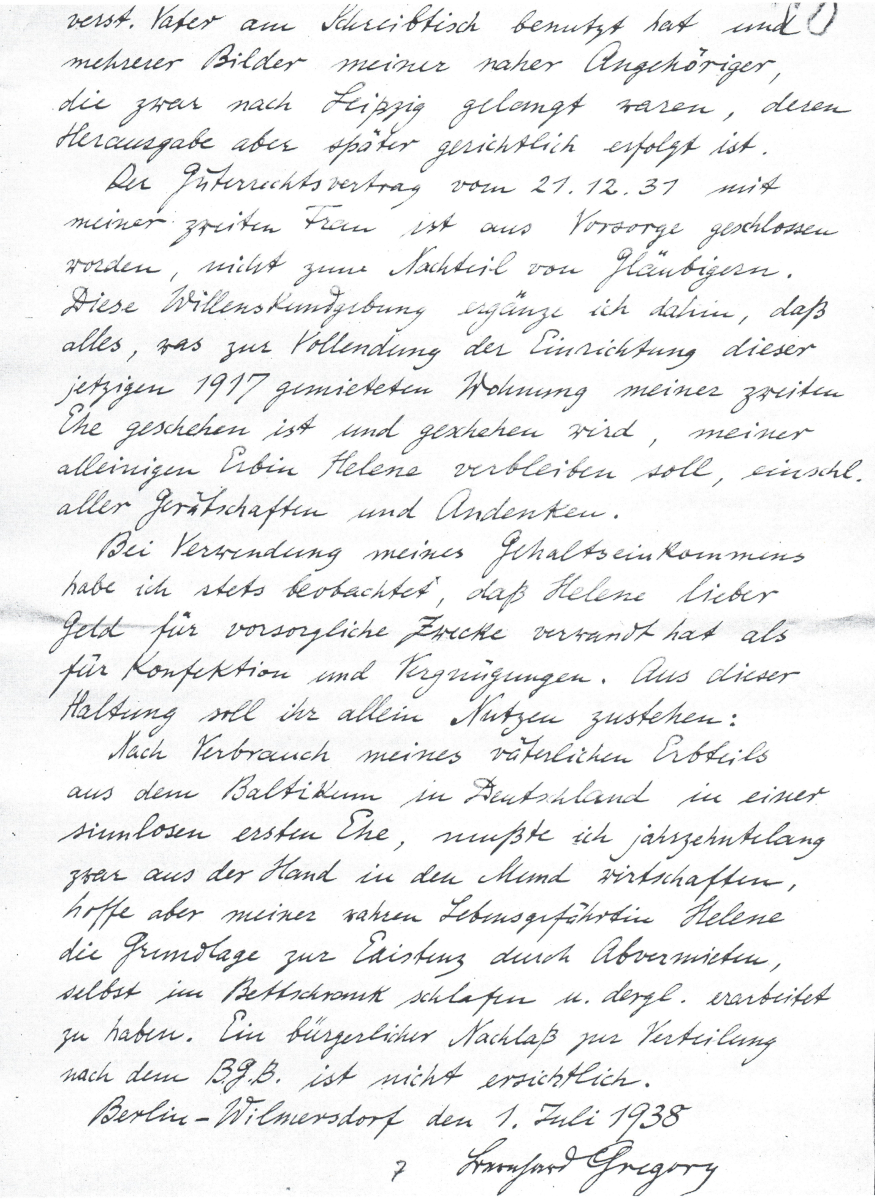 verst. Vater am Schreibtisch benutzt hat und
mehrerer Bilder meiner naher Angehöriger,
die zwar nach Leipzig gelangt waren, deren
Herausgabe aber später gerichtlich erfolgt ist.
Der Güterrechtsvertrag vom 21.12.31 mit
meiner zweiten Frau ist aus Vorsorge geschlossen
worden, nicht zum Nachteil von Gläubigern.
Diese Willenskundgebung ergänze ich dahin, daß
alles, was zur Vollendung der Einrichtung dieser
jetzigen 1917 gemieteten Wohnung meiner zweiten
Ehe geschehen ist und geschehen wird, meiner
alleinigen Erbin Helene verbleiben soll, einschl.
aller Gerätschaften und Andenken.
Bei Verwendung meines Gehaltseinkommens
habe ich stets beobachtet, daß Helene lieber
Geld für vorsorgliche Zwecke verwandt hat als
für Konfektion und Vergnügungen. Aus dieser
Haltung soll ihr allein Nutzen zustehen:
Nach Verbrauch meines väterlichen Erbteils
aus dem Baltikum in Deutschland in einer
sinnlosen ersten Ehe, mußte ich jahrzehntelang
zwar aus der Hand in den Mund wirtschaften,
hoffe aber meiner wahren Lebensgefährtin Helene
die Grundlage zur Existenz durch Abvermieten,
selbst im Bettschrank schlafen u. dergl. erarbeitet
zu haben. Ein bürgerlicher Nachlaß zur Verteilung
nach dem B.G.B. ist nicht ersichtlich.
Berlin-Wilmersdorf den 1. Juli 1938
7 Bernhard Gregory